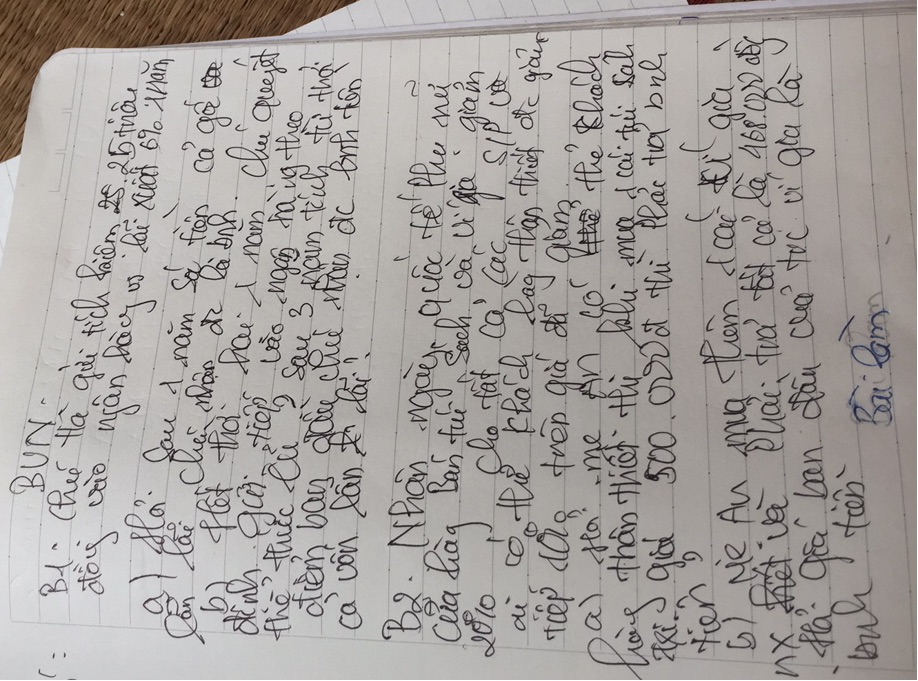 BVN
B1. Chú Hà gửi tiết kiệm 25 triệu
đồng vào ngân hàng vs lãi suất 6% 1 năm
a) Hỏi sau 1 năm số tiền cả gốc
lẫn lãi chú nhận đc là bn
b) Hết thời hạn 1 năm chú quyết
định gửi tiếp vào ngân hàng theo
thể thức cũ, sau 3 năm tính từ thời
điểm ban đầu chú nhận đc bnh tiền
cả vốn lẫn lãi?
B2. Nhân ngày quốc tế phụ nữ
cửa hàng bán túi sách và ví giảm giá
20% cho tất cả các s/p và
ai có thẻ khách hàng thân thiết đc giảm
tiếp 10% trên giá đã giảm
a) Hỏi mẹ An có thẻ khách
hàng thân thiết thì khi mua 1 cái túi sách
trị giá 500.000đ thì phải trả bnh
tiền
b) Mẹ An mua thêm 1 cái ví giá
nx và phải trả tất cả là 468.000 đồng
Hỏi giá ban đầu của 1 cái ví giá là
bnh tiền
Bài làm